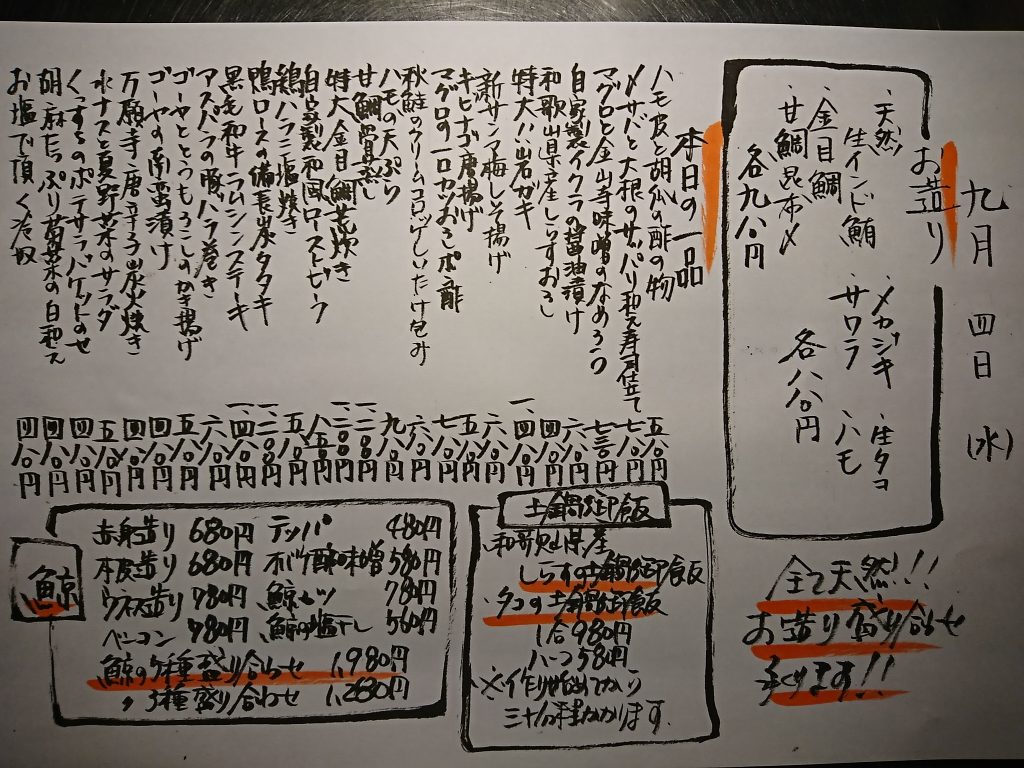 九月四日(水)
お造り
・天然
生インド鮪
・金目鯛
・甘鯛昆布〆
各九八〇円
・メカジキ
・サワラ
・生タコ
・ハモ
各八八〇円
全て天然!!!
お造り盛り合わせ
承ります!!
本日の一品
ハモ皮と胡瓜の酢の物 五八〇円
〆サバと大根のサッパリ和え寿司仕立て 七八〇円
マグロと金山寺味噌のなめろう 七三〇円
自家製イクラの醤油漬け 六八〇円
和歌山県産しらすおろし 四八〇円
特大!!岩ガキ 一、四八〇円
新サンマ梅しそ揚げ 六八〇円
キビナゴ唐揚げ 五八〇円
マグロの一口カツおろしポン酢 七八〇円
秋鮭のクリームコロッケしいたけ包み 六八〇円
ハモの天ぷら 九八〇円
甘鯛骨蒸し 一、二八〇円
特大金目鯛荒炊き 一、二〇〇円
自家製和風ローストビーフ 八五〇円
鶏ハラミ塩焼き 五八〇円
鴨ロースの備長炭タタキ 一、二〇〇円
黒毛和牛ラムシンステーキ 一、四八〇円
アスパラの豚バラ巻き 六八〇円
ゴーヤととうもろこしのかき揚げ 五八〇円
ゴーヤの南蛮漬け 四八〇円
万願寺唐辛子炭火焼き 四八〇円
水ナスと夏野菜のサラダ 五八〇円
くずし々のポテサラバゲットのせ 四八〇円
胡麻たっぷり菊菜の白和え 四八〇円
お塩で頂く冷奴 四八〇円
土鍋御飯
和歌山県産
しらすの土鍋御飯
・タコの土鍋御飯
1合 980円
ハーフ 580円
※作り始めてから
三十分程かかります。
鯨
赤身造り 680円
本皮造り 680円
ウネス造り 780円
ベーコン 780円
テッパ 480円
780円
鯨の塩干し 560円
鯨の5種盛り合わせ 1,980円
〃 3種盛り合わせ 1,280円